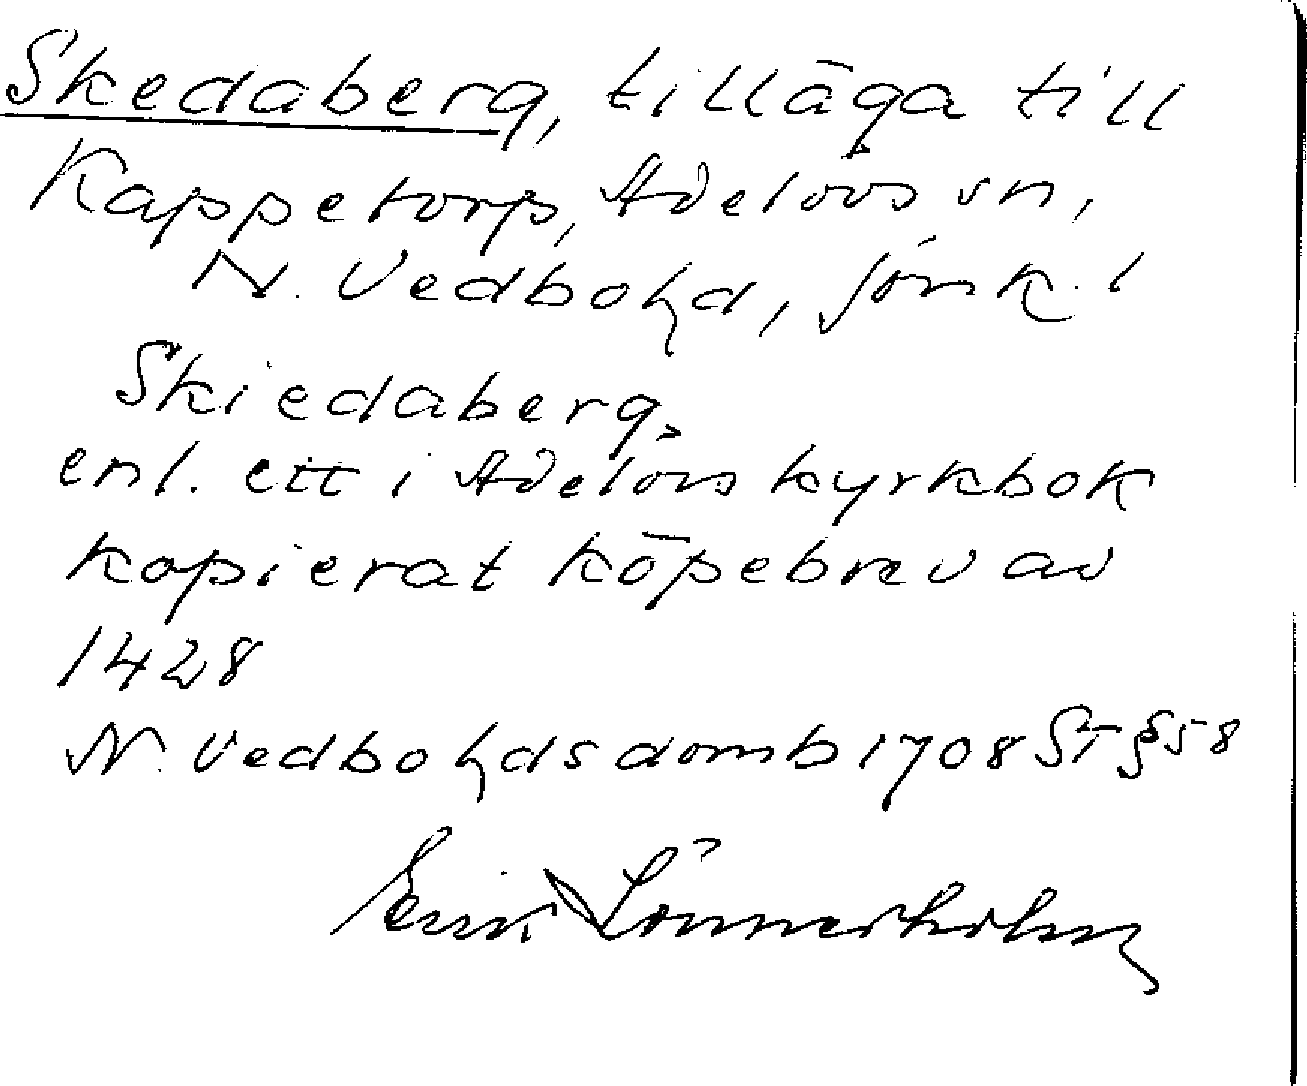 Skedaberg, tillāga till
Kappetorp, Adelövs sn,
N. Vedbohd, Jönk. l
Skiedaberg,
enl. ett i Adelövs kyrkbok
kopierat köpebrev av
1428
N. Vedbohds domb 1708 ST § 58
Erik Lönnerholm